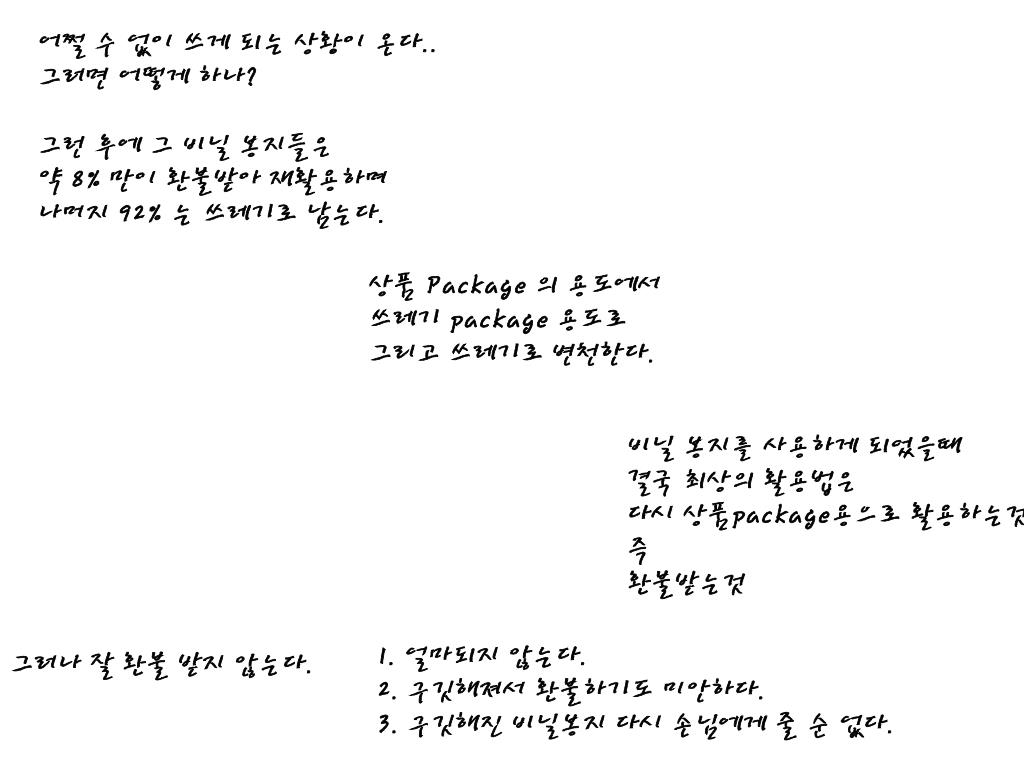 어쩔 수 없이 쓰게 되는 상황이 온다..
그러면 어떻게 하나?
그런 후에 그 비닐 봉지들은
약 8% 만이 환불받아 재활용하며
나머지 92% 는 쓰레기로 남는다.
상품 Package 의 용도에서
쓰레기 package 용도로
그리고 쓰레기로 변천한다.
비닐 봉지를 사용하게 되었을때
결국 최상의 활용법은
다시 상품package용으로 활용하는것
즉
환불받는것
그러나 잘 환불 받지 않는다.
1. 얼마되지 않는다.
2. 구깃해져서 환불하기도 미안하다.
3. 구깃해진 비닐봉지 다시 손님에게 줄 순 없다.